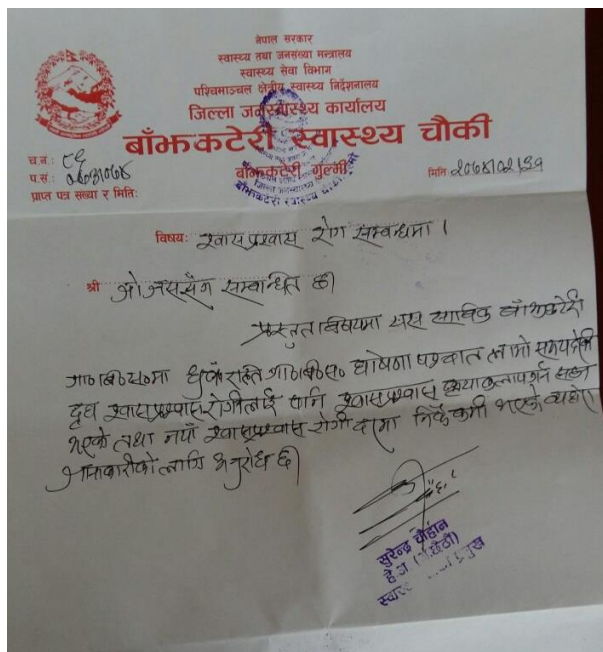 नेपाल सरकार
स्वास्थ्य तथा जनसंख्या मन्त्रालय
स्वास्थ्य सेवा विभाग
पश्चिमाञ्चल क्षेत्रीय स्वास्थ्य निर्देशनालय
जिल्ला जनस्वास्थ्य कार्यालय
बाँझकटेरी स्वास्थ्य चौकी
बाँझकटेरी गुल्मी
च.नं.: ८६
प.सं.:
मिति:
प्राप्त पत्र संख्या र मिति:
विषय: श्वासप्रश्वास रोग सम्बन्धमा ।
श्री जो जससँग सम्बन्धित छ।
प्रस्तुत बिषयमा यस साबिक बाँझकटेरी
गा०बि०स०मा धुवाँ रहित गा०बि०स० घोषणा पश्चात लामो समयदेखी
श्वासप्रश्वास रोगीलाई पनि श्वासप्रश्वास सहज
भएको तथा नयाँ श्वासप्रश्वास रोगी दरमा निकै कमी भएको व्यहोरा
जानकारीको लागि अनुरोध छ।
सुरेन्द्र चौहान